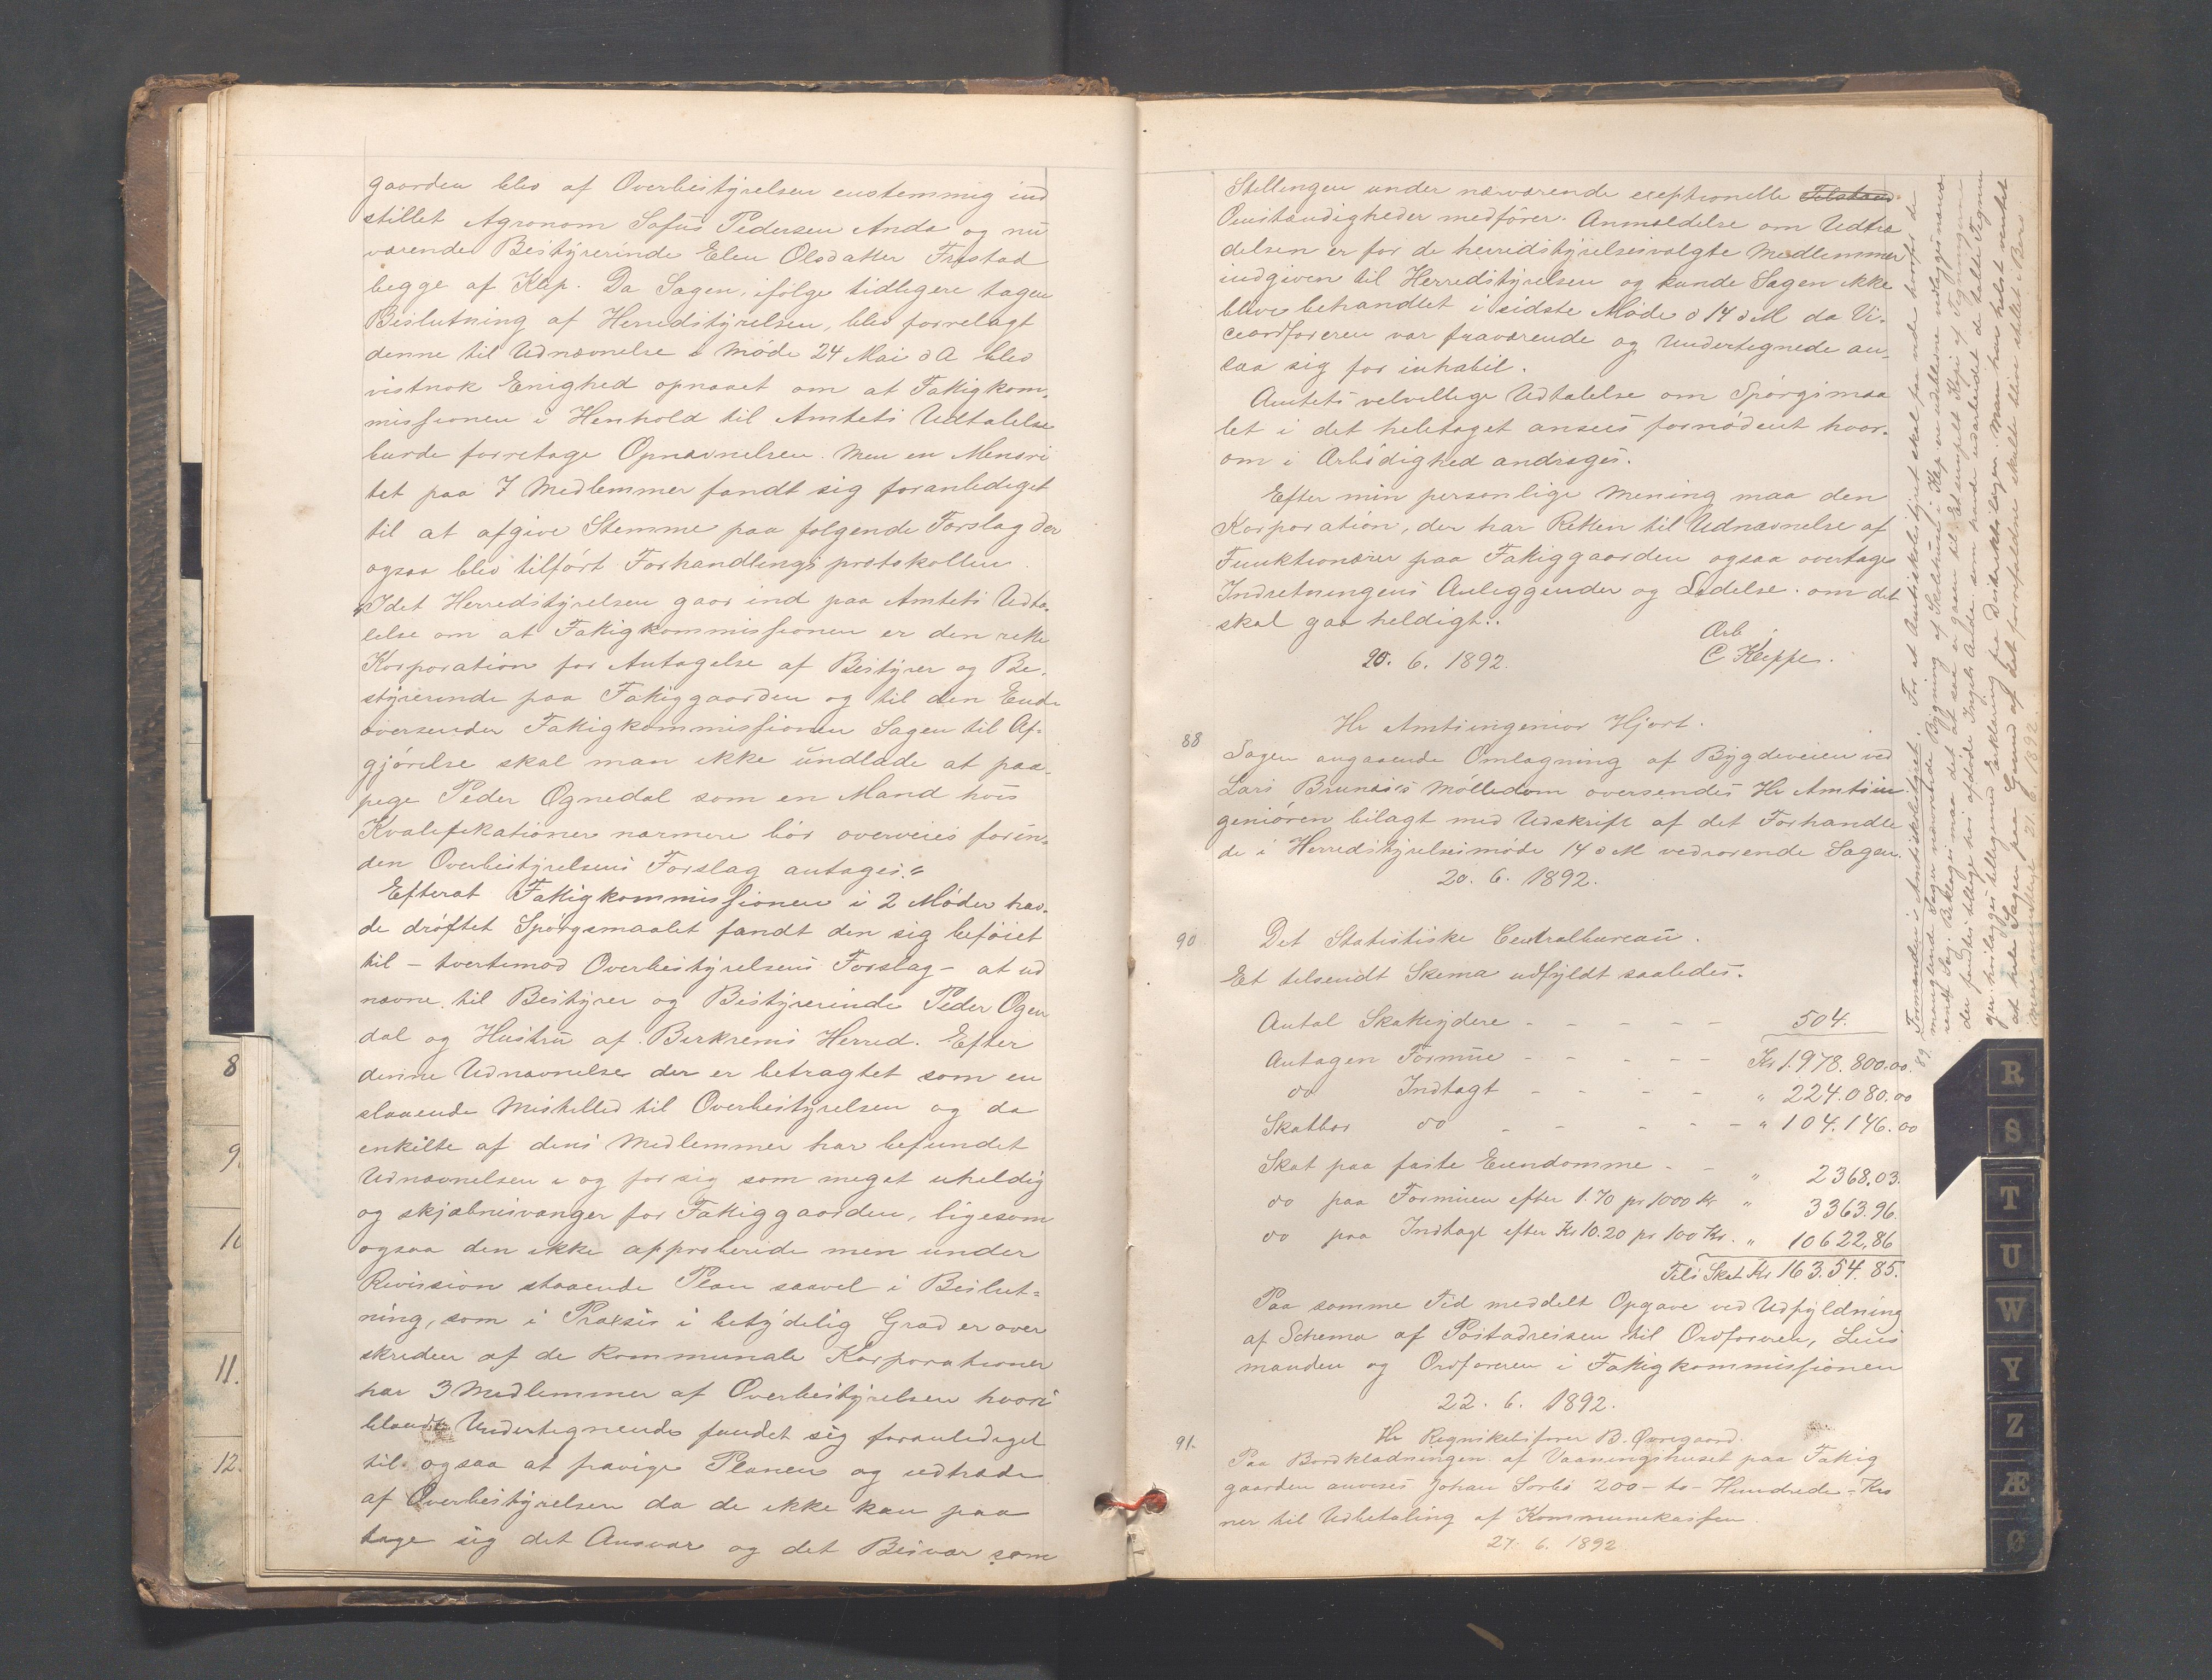 gaarden blev af Overbestyrelsen enstemmig ind
stillet Agronom Sofus Pedersen Anda og nu
værende Bestyrerinde Elen Olsdatter Frøstad
begge af Klep. Da Sagen, ifølge tidligere tagen
Beslutning af Herredstyrelsen, blev forrelagt
denne til Udnævnelse i Møde 24 Mai d A blev
vistnok Enighed opnaaet om at Fattigkom-
missionen i Henhold til Amtets Udtalelse
burde forretage Opnævnelsen. Men en Menori
tet paa 7 Medlemmer fandt sig foranlediget
til at afgive Stemme paa følgende Forslag der
ogsaa blev tilført Forhandlingsprotokollen.
"Idet Herredstyrelsen gaar ind paa Amtets Udta-
lelse om at Fattigkommissionen er den rette
Korporation for Antagelse af Bestyrer og Be-
styrerinde paa Fattiggaarden og til den Ende
oversender Fattigkommissionen Sagen til Af-
gjørelse skal man ikke undlade at paa-
pege Peder Ognedal som en Mand hvis
Kvalifikationer nærmere bør overveies forin-
den Overbestyrelsens Forslag antages."
Efterat Fattigkommissionen i 2 Møder hav-
de drøftet Spørgsmaalet fandt den sig beføiet
til - tvertimod Overbestyrelsens Forslag - at ud
nævne til Bestyrer og Bestyrerinde Peder Ogne
dal og Hustru af Birkrems Herred. Efter
denne Udnævnelse der er betragtet som en
slaaende Mistillid til Overbestyrelsen og da
enkilte af dens Medlemmer har befundet
Udnævnelsen i og for sig som meget uheldig
og skjæbnesvanger for Fattiggaarden, ligesom
ogsaa den ikke approberede men under
Revission staaende Plan saavel i Beslut-
ning, som i Praxsis i betydelig Grad er over
skreden af de kommunale Korporationer
har 3 Medlemmer af Overbestyrelsen hvori
blandt Undertegnende fundet sig foranlediget
til ogsaa at fravige Planen og udtræde
af Overbestyrelsen da de ikke kan paa
tage sig det Ansvar og det Besvær som
Stillingen under nærværende exeptionelle Tilstand
Omstændigheder medfører. Anmeldelse om Udtræ
delsen er for de herredstyrelsesvalgte Medlemmer
indgiven til Herredstyrelsen og kunde Sagen ikke
blive behandlet i sidste Møde d 14 d M da Vi-
ceordføreren var fraværende og Undertegnede an-
saa sig for inhabil.
Amtets velvillige Udtalelse om Spørgsmaa
let i det heletaget ansees fornødent hvor-
om i Ærbødighed andrages.
Efter min personlige Mening maa den
Korporation, der har Retten til Udnævnelse af
Funktionærer paa Fattiggaarden ogsaa overtage
Indretningens Anliggender og Ledelse om det
skal gaa heldigt.
Ærb
20. 6. 1892. C Kleppe.
Hr Amtsingeniør Hjort.
88 Sagen angaaende Omlægning af Bygdeveien ved
Lars Brunæs's Mølledam oversendes Hr Amtsin
geniøren bilagt med Udskrift af det Forhandle
de i Herredstyrelsesmøde 14 d M vedrørende Sagen.
20. 6. 1892.
90 Det Statistiske Centralbureau.
Et tilsendt Skema udfyldt saaledes.
Antal Skatteydere - - - - - 504.
Antagen Formue - - - - - Kr 1.978.800.00.
do Indtægt - - - - " 224.080.00
Skatbar do - - - - - " 104.146.00
Skat paa faste Eiendomme - - " 2368.03.
do paa Formuen efter 1.70 pr 1000 Kr " 3363.96.
do paa Indtægt efter Kr 10.20 pr 100 Kr. " 10622,86
Tils Skat Kr 163.54.85.
Paa samme Tid meddelt Opgave ved Udfyldning
af Schema af Postadressen til Ordføreren, Lens
manden og Ordføreren i Fattigkommissionen
22. 6. 1892.
91. Hr Regnskabsfører B. Øvregaard.
Paa Bordklædningen af Vaaningshuset paa Fattig
gaarden anvises Johan Sørbø 200 - to - Hundrede - Kro
ner til Udbetaling af Kommunekassen.
27. 6. 1892
89 Formanden i Amtsskolestyret. For at Amtsskolestyret skal faa vide hvorfor de
manglende Sager vedrørende Bygning af Skolehuse i Klep er udeblevne vedlægges nærvæ
rende Sag. Beklages maa det at saa er gaaet til. Et enkelt Kopi af Tegningerne
gen hvilagges tillegemed Erklæring fra Distriktslægen. Man har helst ventet
at hele Sagen paa Grund af det forrefaldne skulde blive stillet i Bero
mere mundtligt 21. 6. 1892.
8
9.
10
11.
12.
R
S
T
U
W
Y
Z
Æ
Ø